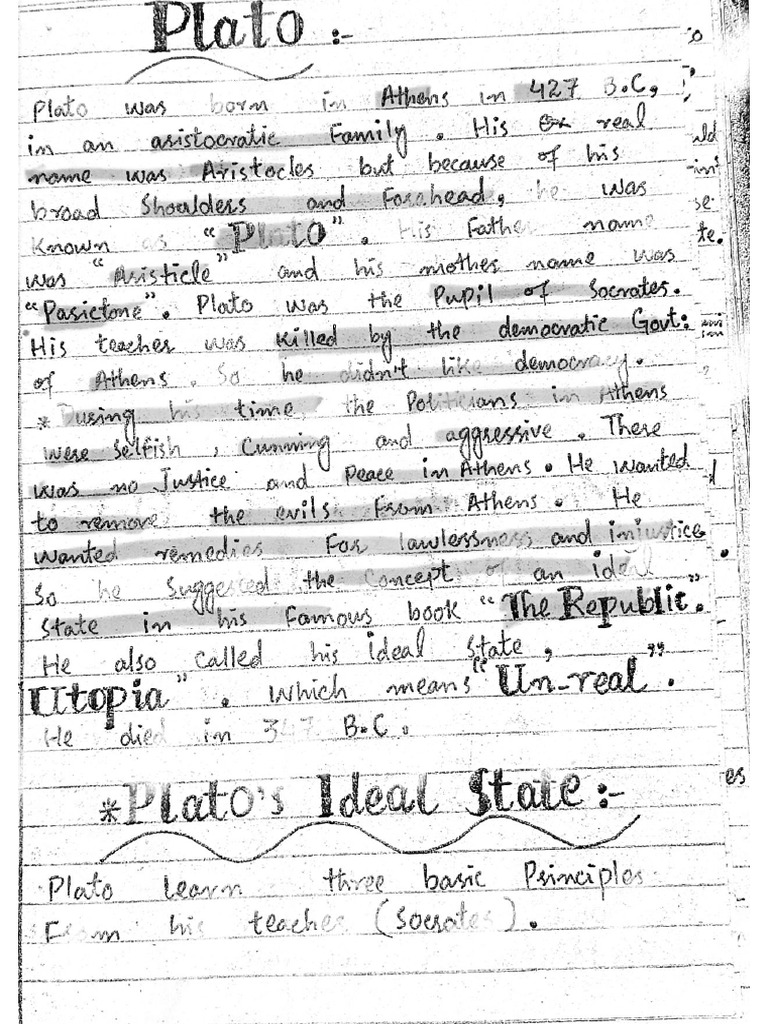 Plato :-
Plato was born in Athens in 427 B.C,
in an aristocratic Family. His real
name was Aristocles but because of his
broad Shoulders and Forehead, he was
Known as "Plato". His Father name
was "Aristicle" and his mother name was
"Parictone". Plato was the Pupil of Socrates.
His teacher was killed by the democratic Govt:
of Athens. So he didn't like democracy.
*During his time the Politicians in Athens
were Selfish, Cunning and aggressive. There
was no Justice and Peace in Athens. He wanted
to remove the evils From Athens. He
wanted remedies For lawlessness and injustice
So he Suggested the Concept of an ideal
State in his Famous book "The Republic".
He also called his ideal State,
Utopia". Which means "Un-real".
He died in 347 B.C.
*Plato's Ideal State:-
Plato learn three basic Principles
From his teacher (Socrates).